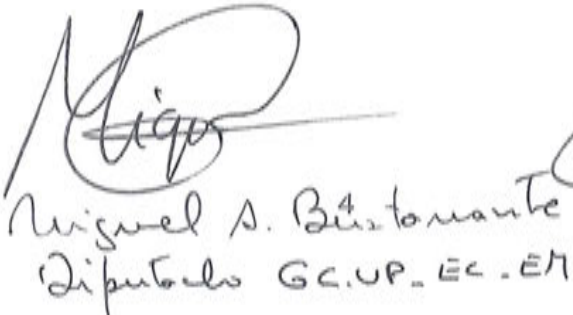 Miguel
Miguel A. Bustamante
Diputado GC.UP-EC-EM